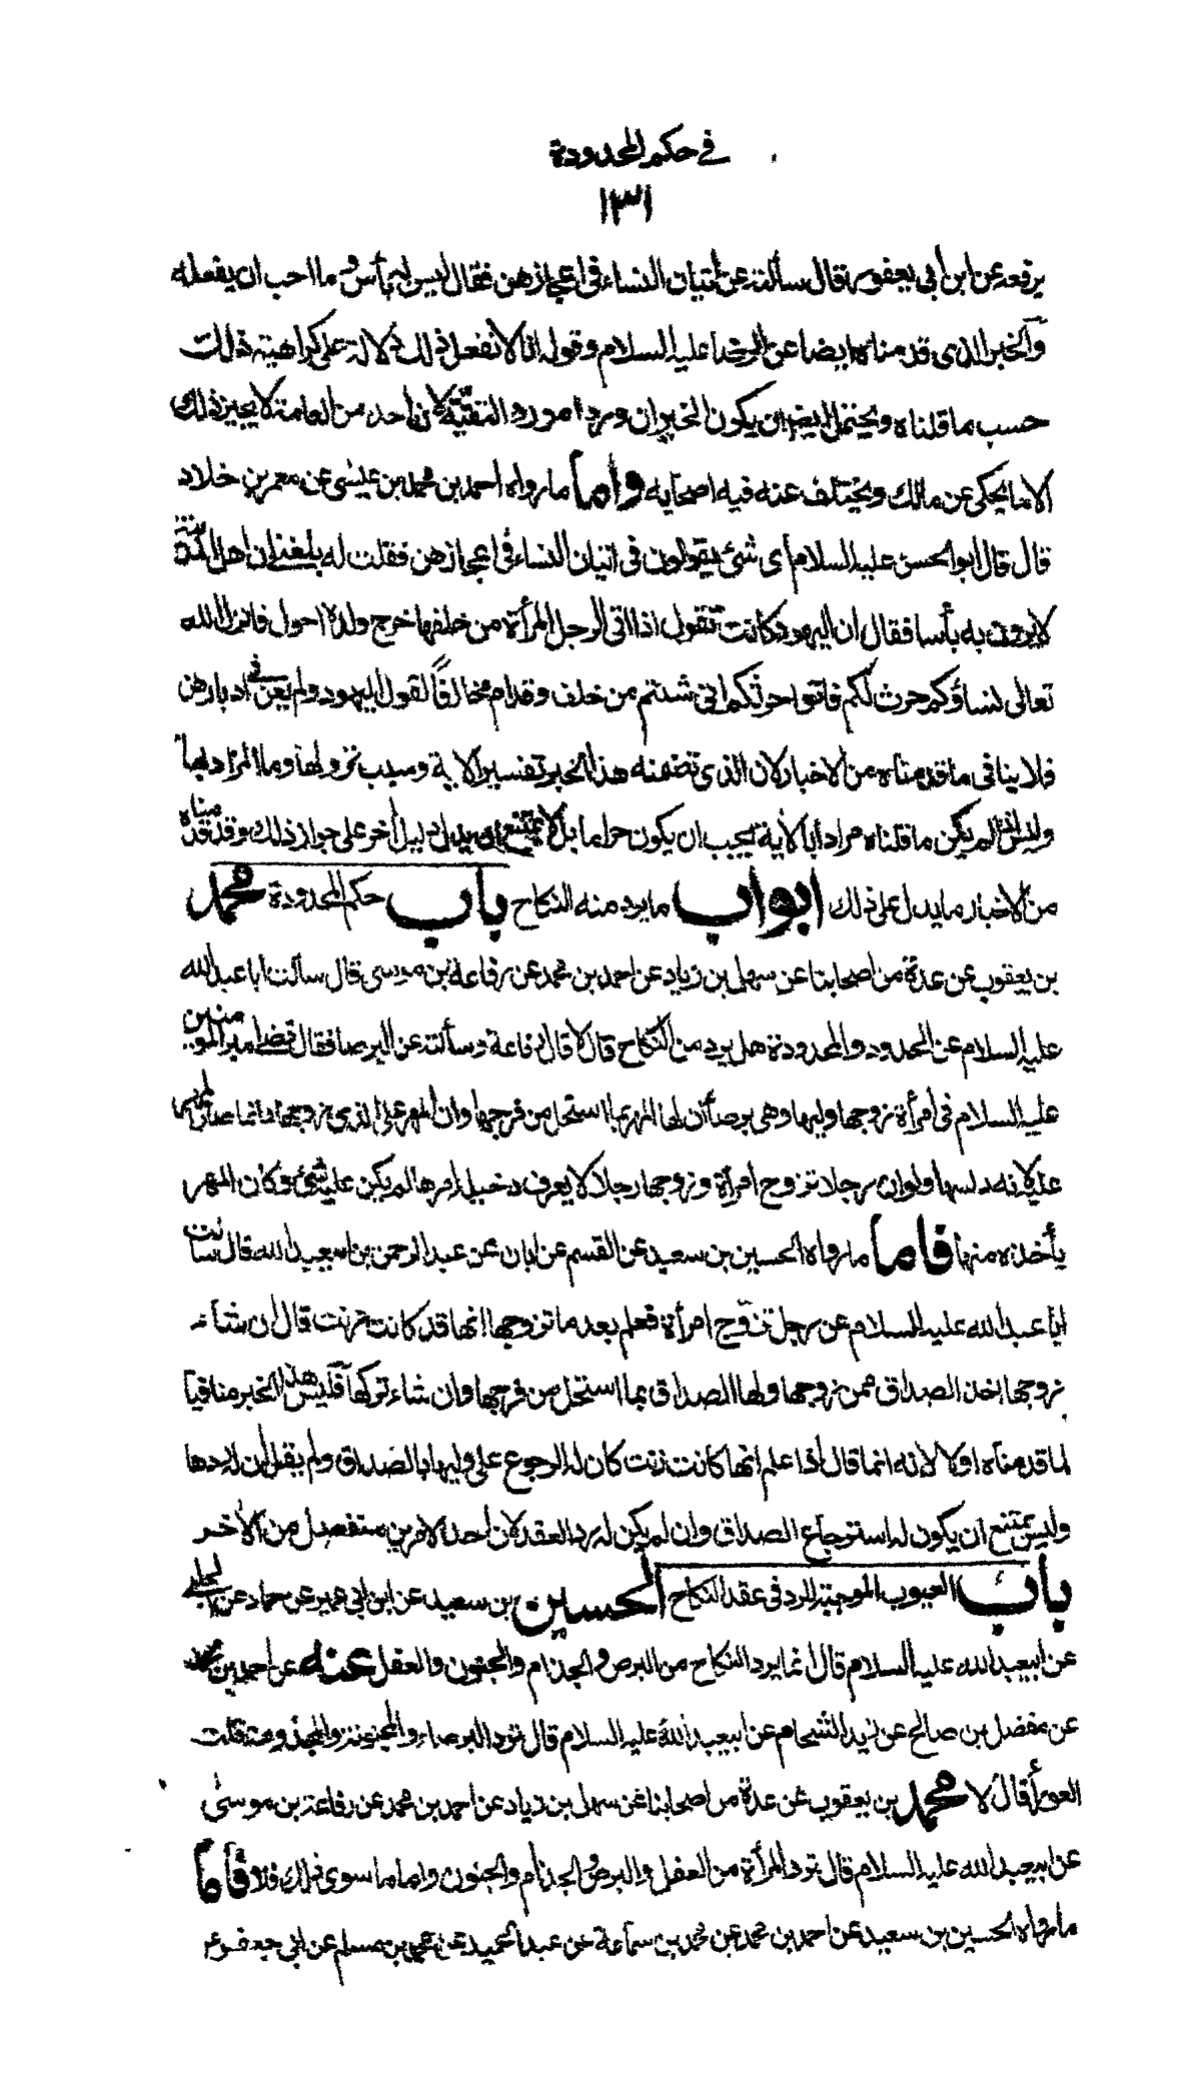 في حكم المحدودة
١٣١
يرفعه عن ابن ابي يعفور قال سألته عن اتيان النساء في اعجازهن فقال ليس به بأس وما احب ان يفعله
والخبر الذي قد مناه ايضا عن الرضا عليه السلام وقوله انا لا نفعل ذلك دلالة على كراهيته ذلك
حسب ما قلناه ويحتمل ايضا ان يكون الخبران وردا مورد التقيّة لان احد من العامة لا يجيز ذلك
الا ما يحكى عن مالك ويختلف عنه فيه اصحابه واما ما رواه احمد بن محمد بن عيسى عن معمر بن خلاد
قال قال ابو الحسن عليه السلام أى شئ يقولون في اتيان النساء في اعجازهن فقلت له بلغني ان اهل المدينة
لا يرون به بأسا فقال ان اليهود كانت تقول اذا اتى الرجل المرأة من خلفها خرج ولده احول فانزل الله
تعالى نساؤكم حرث لكم فاتوا حرثكم انى شئتم من خلف وقدام مخالفاً لقول اليهود ولم يعن في ادبارهن
فلا ينافى ما قد مناه من الاخبار لان الذى تضمنه هذا الخبر تفسير الاية وسبب نزولها وما المراد بها
وليس اذا لم يكن ما قلناه مرادا بالأية يجب ان يكون حراما بل لا يمتنع ان يدل دليل أخر على جواز ذلك وقد قدمناه
من الاخبار ما يدل على ذلك ابواب ما يرد منه النكاح باب حكم المحدودة محمد
بن يعقوب عن عدة من اصحابنا عن سهل بن زياد عن احمد بن محمد عن رفاعة بن موسى قال سألت ابا عبد الله
عليه السلام عن المحدود والمحدودة هل يرد من النكاح قال لا قال رفاعة وسألته عن البرصا فقال قضى امير المومنين
عليه السلام في امرأة زوجها وليها وهى برصأ ان لها المهر بما استحل من فرجها وان المهر على الذي زوجها وانما صار المهر
عليه لانه دلسها ولو ان رجلا تزوج امرأة وزوجها رجلا لا يعرف دخيل امرها لم يكن عليه شئ وكان المهر
يأخذه منها فاما ما رواه الحسين بن سعيد عن القسم عن ابان عن عبد الرحمن بن ابيعبد الله قال سألت
ابا عبد الله عليه السلام عن رجل تزوّج امرأة فعلم بعد ما تزوجها انها قد كانت زنت قال ان شاء
زوجها اخذ الصداق ممن زوجها ولها الصداق بما استحل من فرجها وان شاء تركها فليس هذا الخبر منافيا
لما قد مناه اولا لانه انما قال اذا علم انها كانت زنت كان له الرجوع على وليها بالصداق ولم يقل ان له ردها
وليس يمتنع ان يكون له استرجاع الصداق وان لم يكن له رد العقد لان احد الامرين منفصل من الأخر
باب العيوب الموجبة للرد في عقد النكاح الحسين بن سعيد عن ابن ابي عمير عن حماد عن الحلبي
عن ابيعبد الله عليه السلام قال انما يرد النكاح من البرص والجذام والجنون والعفل عنه عن احمد بن محمد
عن مفضل بن صالح عن زيد الشحام عن ابيعبد الله عليه السلام قال ترد البرصاء والمجنونة والمجذومة قلت
العورأ قال لا محمد بن يعقوب عن عدة من اصحابنا عن سهل بن زياد عن احمد بن محمد عن رفاعة بن موسى
عن ابيعبد الله عليه السلام قال ترد المرأة من العفل والبرص والجذام والجنون واما ما سوى ذلك فلا فأما
ما رواه الحسين بن سعيد عن احمد بن محمد عن محمد بن سماعة عن عبد الحميد عن محمد بن مسلم عن ابي جعفر ع